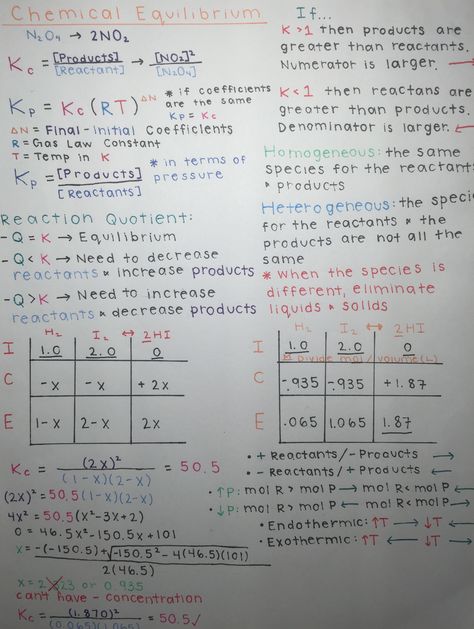 Chemical Equilibrium
N₂O₄ → 2NO₂
Kc = [Products]/[Reactant] → [NO₂]²/[N₂O₄]
Kp = Kc(RT)^ΔN
* if coefficients
are the same
Kp = Kc
ΔN = Final-Initial Coefficients
R = Gas Law Constant
T = Temp in K
Kp = [Products]/[Reactants]
* in terms of
pressure
Reaction Quotient:
-Q = K → Equilibrium
-Q < K → Need to decrease
reactants & increase products
-Q > K → Need to increase
reactants & decrease products
H₂ I₂ ↔ 2HI
I 1.0 2.0 0
C -x -x +2x
E 1-x 2-x 2x
Kc = (2x)²/(1-x)(2-x) = 50.5
(2x)² = 50.5(1-x)(2-x)
4x² = 50.5(x²-3x+2)
0 = 46.5x²-150.5x+101
x = -(-150.5)±√-150.5²-4(46.5)(101)
2(46.5)
x = 2.323 or 0.935
can't have - concentration
Kc = (1.870)²/(0.065)(1.065) = 50.5✓
If...
K > 1 then products are
greater than reactants.
Numerator is larger. →
K < 1 then reactans are
greater than products.
Denominator is larger. ←
Homogeneous: the same
species for the reactant
& products
Heterogeneous: the speci
for the reactants & the
products are not all the
same
* When the species is
different, eliminate
liquids & solids
H₂ I₂ ↔ 2HI
I 1.0 2.0 0
* Divide mol/volume(L)
C -.935 -.935 +1.87
E .065 1.065 1.87
• + Reactants/- Products →
• - Reactants/+ Products ←
• ↑P: mol R > mol P → mol R < mol P ←
• ↓P: mol R > mol P ← mol R < mol P →
• Endothermic: ↑T → ↓T ←
• Exothermic: ↑T ← ↓T →